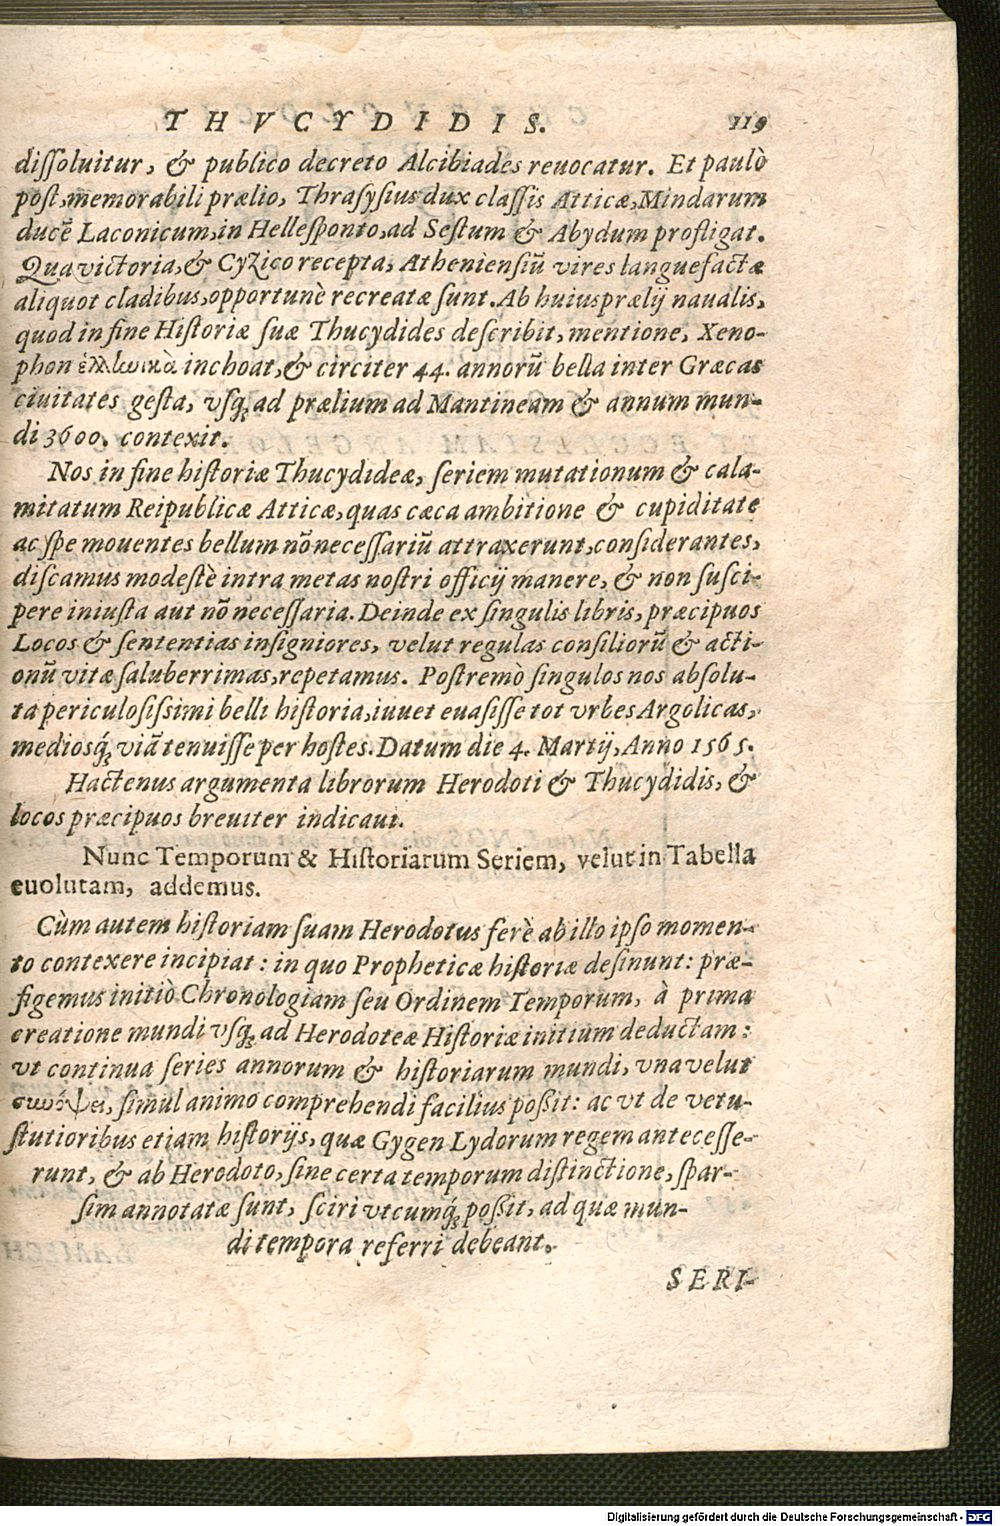 THVCYDIDIS. 119
dissoluitur, & publico decreto Alcibiades reuocatur. Et paulò
post, memorabili prælio, Thrasysius dux classis Atticæ, Mindarum
ducẽ Laconicum, in Hellesponto, ad Sestum & Abydum profligat.
Qua victoria, & Cyzico recepta, Atheniensiũ vires languefactæ
aliquot cladibus, opportunè recreatæ sunt. Ab huius prælij naualis,
quod in fine Historiæ suæ Thucydides describit, mentione, Xeno-
phon ἑλλωικὰ inchoat, & circiter 44. annorũ bella inter Græcas
ciuitates gesta, vsq; ad prælium ad Mantineam & annum mun-
di 3600. contexit.
Nos in fine historiæ Thucydideæ, seriem mutationum & cala-
mitatum Reipublicæ Atticæ, quas cæca ambitione & cupiditate
ac spe mouentes bellum nõ necessariũ attraxerunt, considerantes,
discamus modestè intra metas nostri officij manere, & non susci-
pere iniusta aut nõ necessaria. Deinde ex singulis libris, præcipuos
Locos & sententias insigniores, velut regulas consiliorũ & acti-
onũ vitæ saluberrimas, repetamus. Postremò singulos nos absolu-
ta periculosissimi belli historia, iuuet euasisse tot vrbes Argolicas,
mediosq́; viã tenuisse per hostes. Datum die 4. Martij, Anno 1565.
Hactenus argumenta librorum Herodoti & Thucydidis, &
locos præcipuos breuiter indicaui.
Nunc Temporum & Historiarum Seriem, velut in Tabella
euolutam, addemus.
Cùm autem historiam suam Herodotus ferè ab illo ipso momen-
to contexere incipiat: in quo Propheticæ historiæ desinunt: præ-
figemus initiò Chronologiam seu Ordinem Temporum, à prima
creatione mundi vsq; ad Herodoteæ Historiæ initium deductam:
vt continua series annorum & historiarum mundi, vna velut
συνόψει, simul animo comprehendi facilius poßit: ac vt de vetu-
stutioribus etiam historijs, quæ Gygen Lydorum regem antecesse-
runt, & ab Herodoto, sine certa temporum distinctione, spar-
sim annotatæ sunt, sciri vtcumq́; poßit, ad quæ mun-
di tempora referri debeant.
SERI-
Digitalisierung gefördert durch die Deutsche Forschungsgemeinschaft - DFG